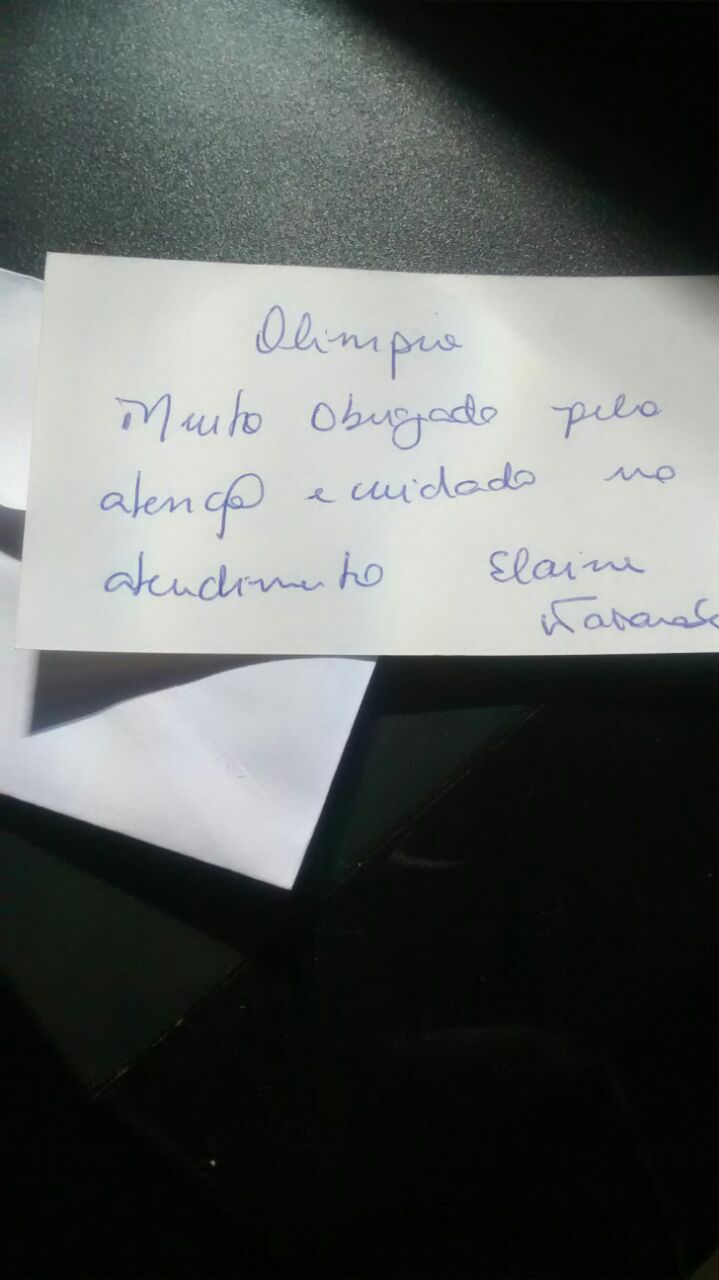 Olimpia
Muito obrigado pela
atenção e cuidado no
atendimento Elaine